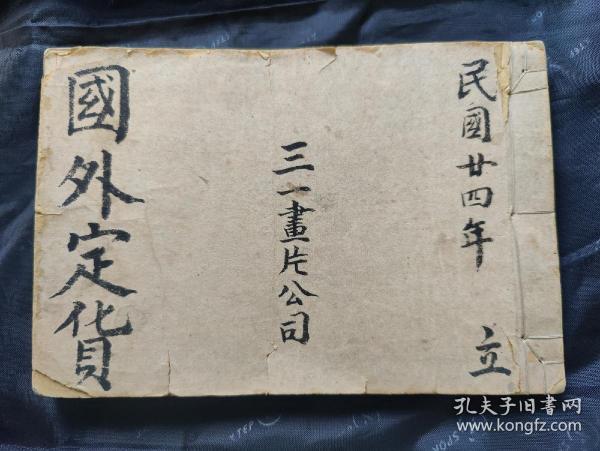 民國廿四年 立
三一畫片公司
國外定货
孔夫子旧书网
www.kongfz.com